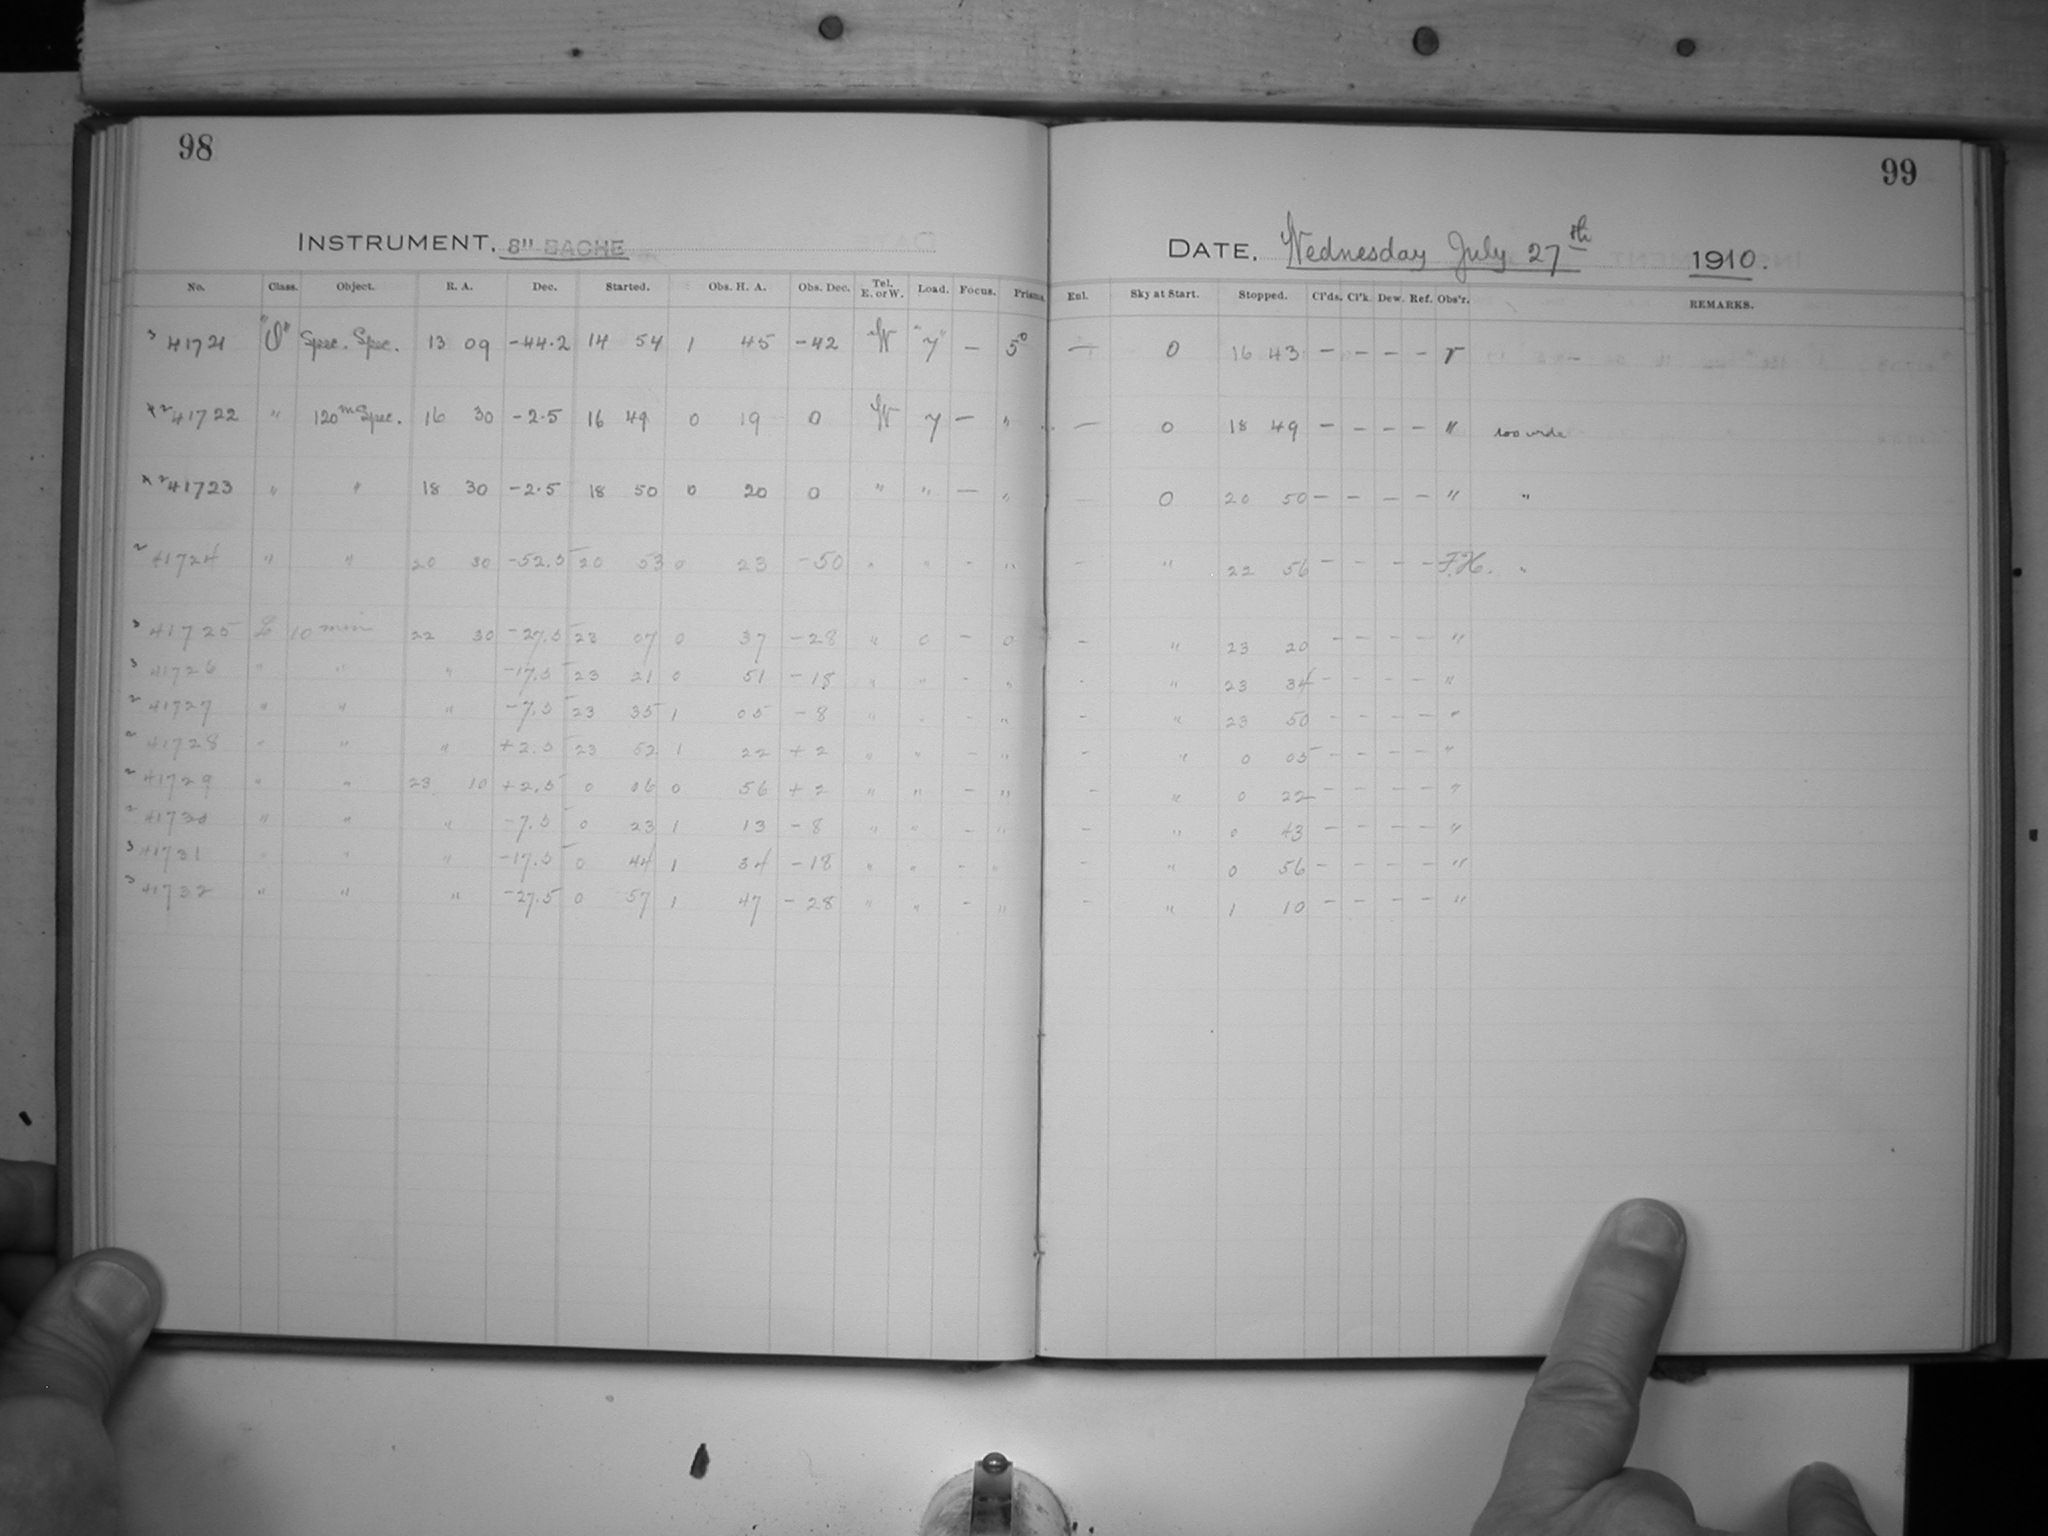 98
99
INSTRUMENT. 8" BACHE
DATE. Wednesday July 27th 1910.
No. Class. Object. R. A. Dec. Started. Obs. H. A. Obs. Dec. Tel. E. or W. Load. Focus. Prisms. Enl. Sky at Start. Stopped. Cl'ds. Cl'k. Dew. Ref. Obs'r. REMARKS.
3 41721 "O" Spec. Spec. 13 09 -44.2 14 54 1 45 -42 W "7" — 5° — 0 16 43 — — — — r
x 2 41722 " 120m Spec. 16 30 -2.5 16 49 0 19 0 W 7 — " — 0 18 49 — — — — "
x 2 41723 " " 18 30 -2.5 18 50 0 20 0 " " — " — 0 20 50 — — — — " "
2 41724 " " 20 30 -52.5 20 53 0 23 -50 " " - " - " 22 56 - - - - F.H. "
3 41725 L 10 min 22 30 -27.5 23 07 0 37 -28 " 0 - 0 - " 23 20 - - - - "
3 41726 " " " -17.5 23 21 0 51 -18 " " - " - " 23 34 - - - - "
2 41727 " " " -7.5 23 35 1 05 -8 " " - " - " 23 50 - - - - "
2 41728 " " " +2.5 23 52 1 22 +2 " " - " - " 0 05 - - - - "
2 41729 " " 23 10 +2.5 0 06 0 56 +2 " " - " - " 0 22 - - - - "
2 41730 " " " -7.5 0 23 1 13 -8 " " - " - " 0 43 - - - - "
3 41731 " " " -17.5 0 44 1 34 -18 " " - " - " 0 56 - - - - "
3 41732 " " " -27.5 0 57 1 47 -28 " " - " - " 1 10 - - - - "